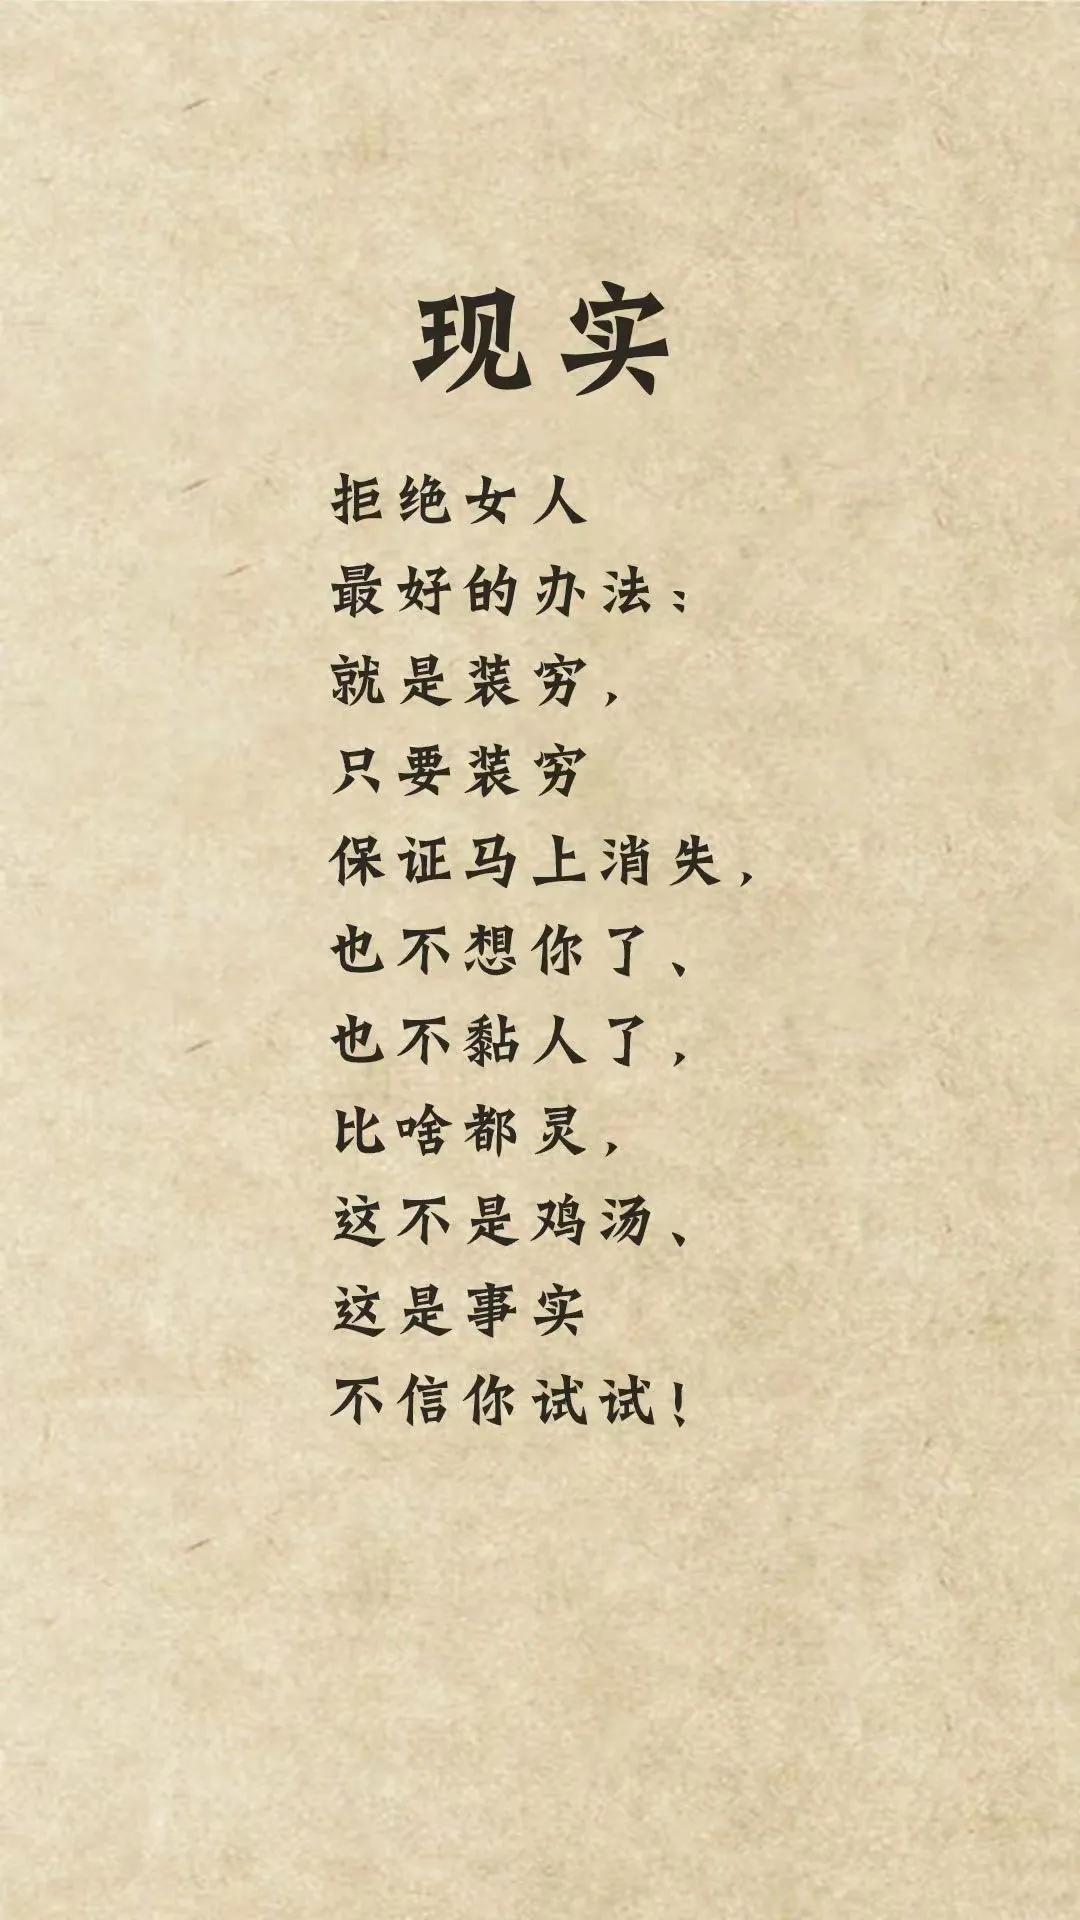 现实
拒绝女人
最好的办法：
就是装穷，
只要装穷
保证马上消失，
也不想你了、
也不黏人了，
比啥都灵，
这不是鸡汤、
这是事实
不信你试试！